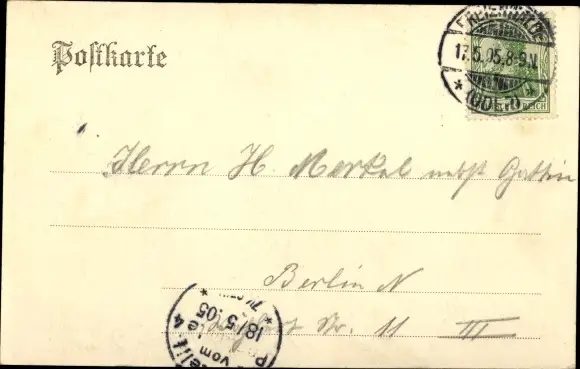 Postkarte
FREIENWALDE
17.5.05.8-9V.
* (ODER) *
REICH
Herrn H. Merkel nebst Gattin
Berlin N
Str. 11 III
4
18/5.05
vom